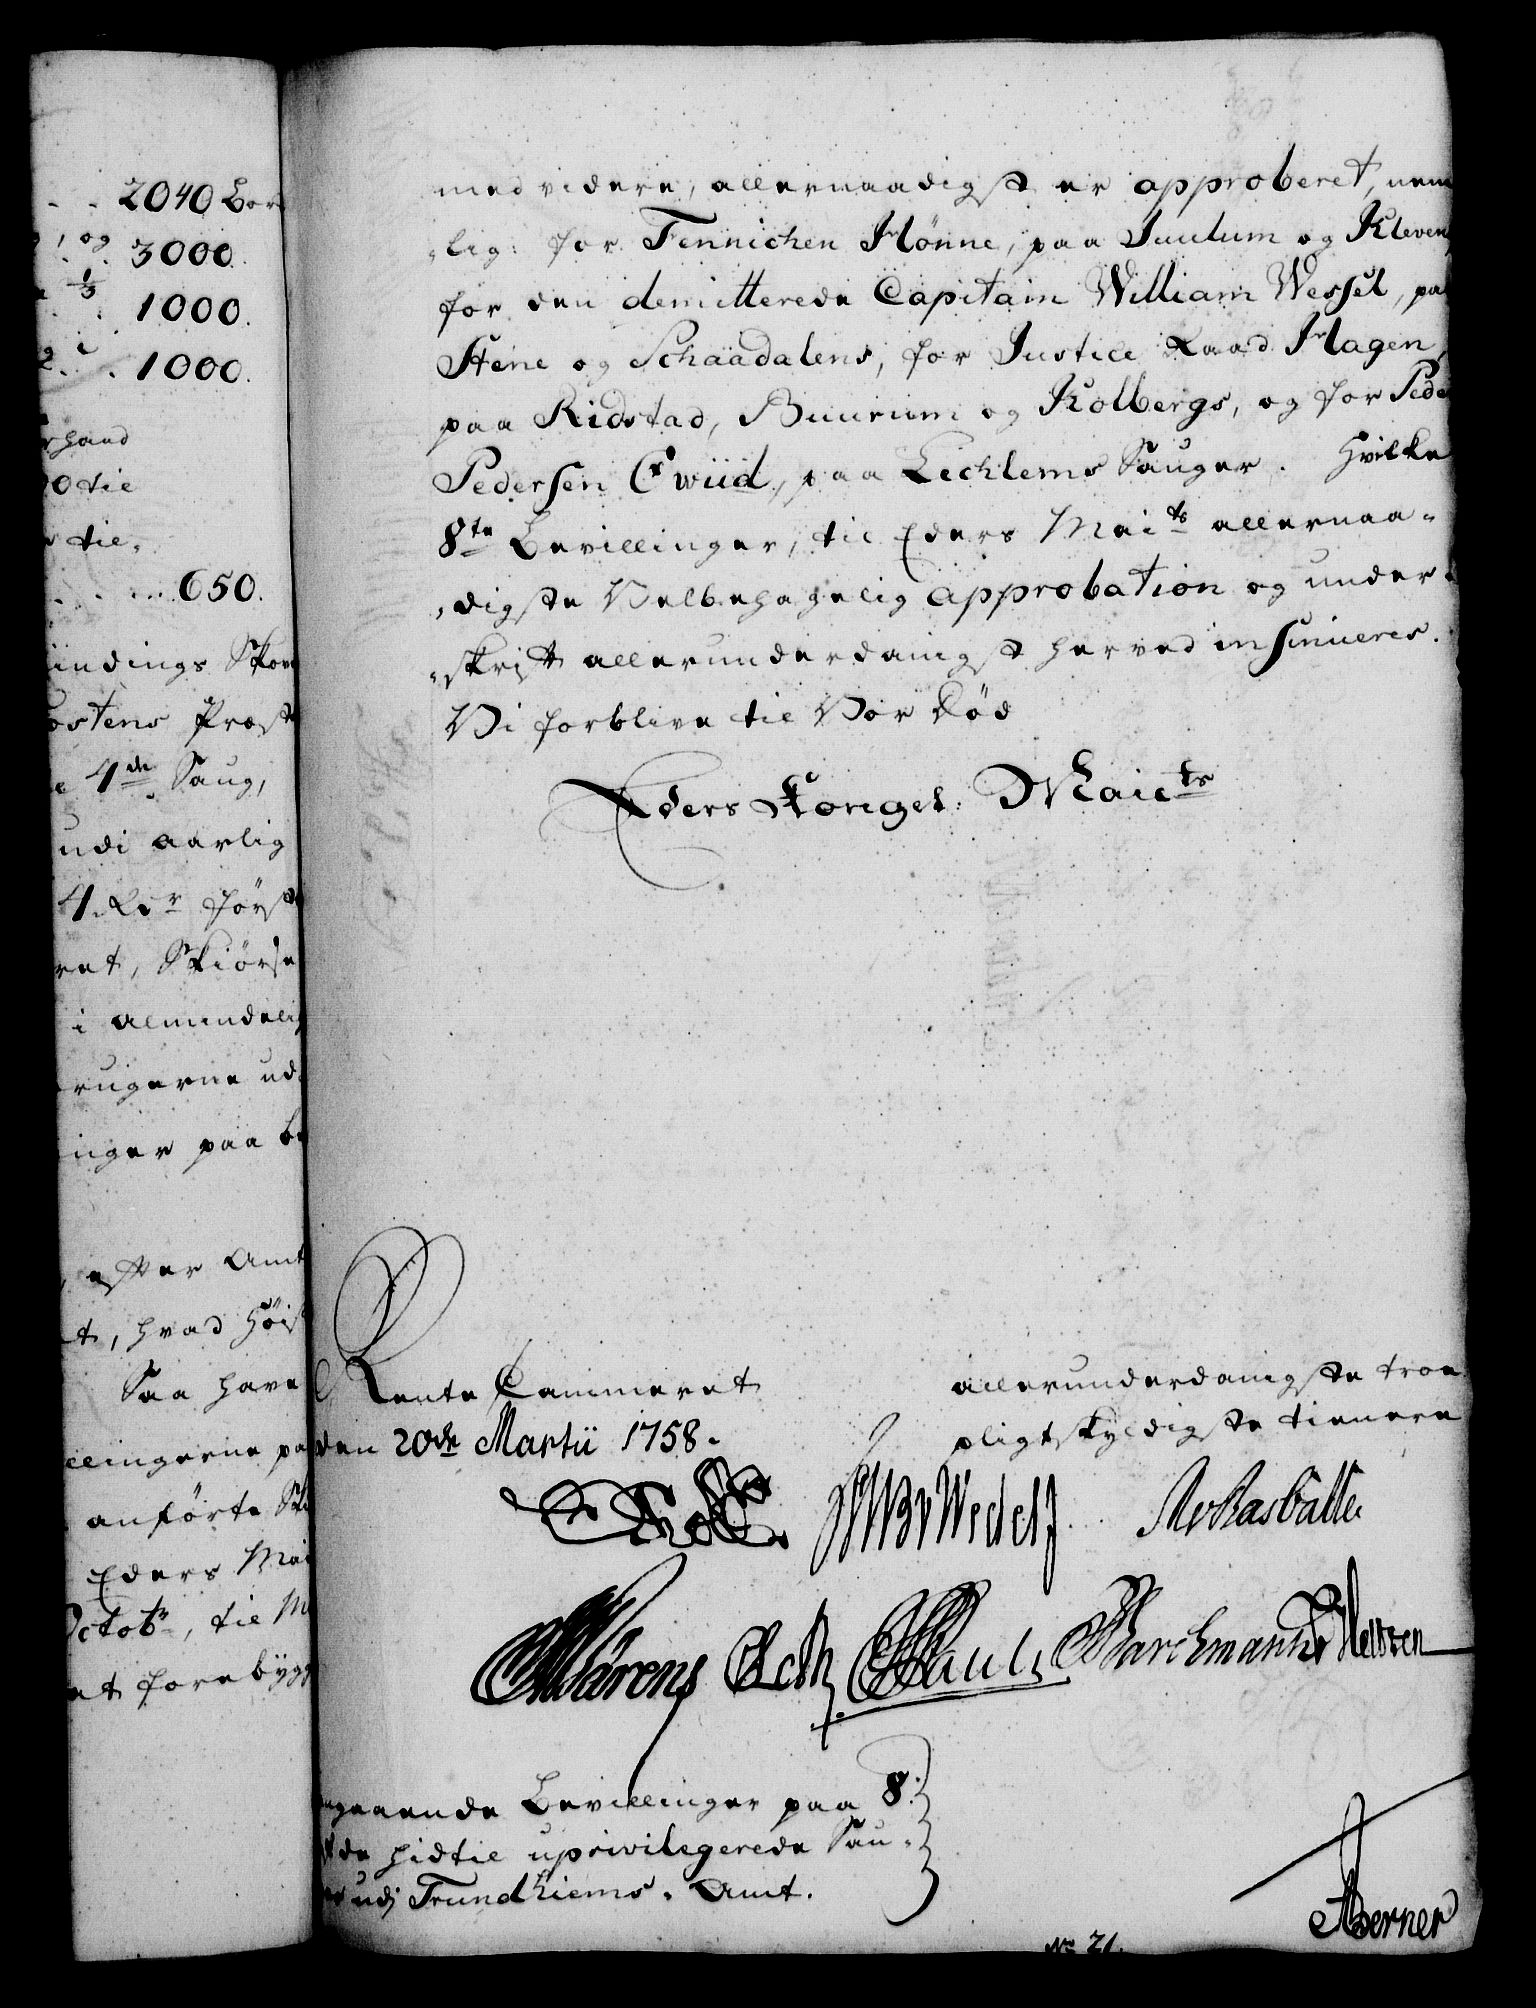 2040 Bor
og 3000.
1/3 1000.
1000.
rhaand
0 til
til
650.
indings Skov
ostens Præst
4de Saug,
udi aarlig
4. Rdr først
ret, Skiørse
i almindelig
brugerne ud
inger paa be
, efter Amt
t, hvad Høist
Saa have
illingerne pa
anførte Sk
Eders Mai
Octobr, til M
et forebygg
med videre, allernaadigst er approberet, nem
lig: for Fennichen Hønne, paa Juulum og Kleven,
for den demitterede Capitain William Wessel, paa
Stene og Schaadalens, for Justice Raad Hagen,
paa Ridstad, Buurum og Kolbergs, og for Peder
Pedersen Qwiid, paa Lechlems Sauger. Hvilke
8te Bevillinger, til Eders Maits allernaa-
digste Velbehagelig approbation og under-
skrift allerunderdanigst herved insinueres.
Vi forblive til Vor Død
Eders Kongel: Maiets
Rente Cammeret
den 20de Martii 1758.
allerunderdanigste troe
pligtskyldigste tienere
Wedel
Rasbälle
Wärens
Pauls
Barchmann
Angaaende Bevillinger paa 8.
de hidtil uprivilegerede Sau-
ger udj Trundhiems Amt.
Berner
No 21.